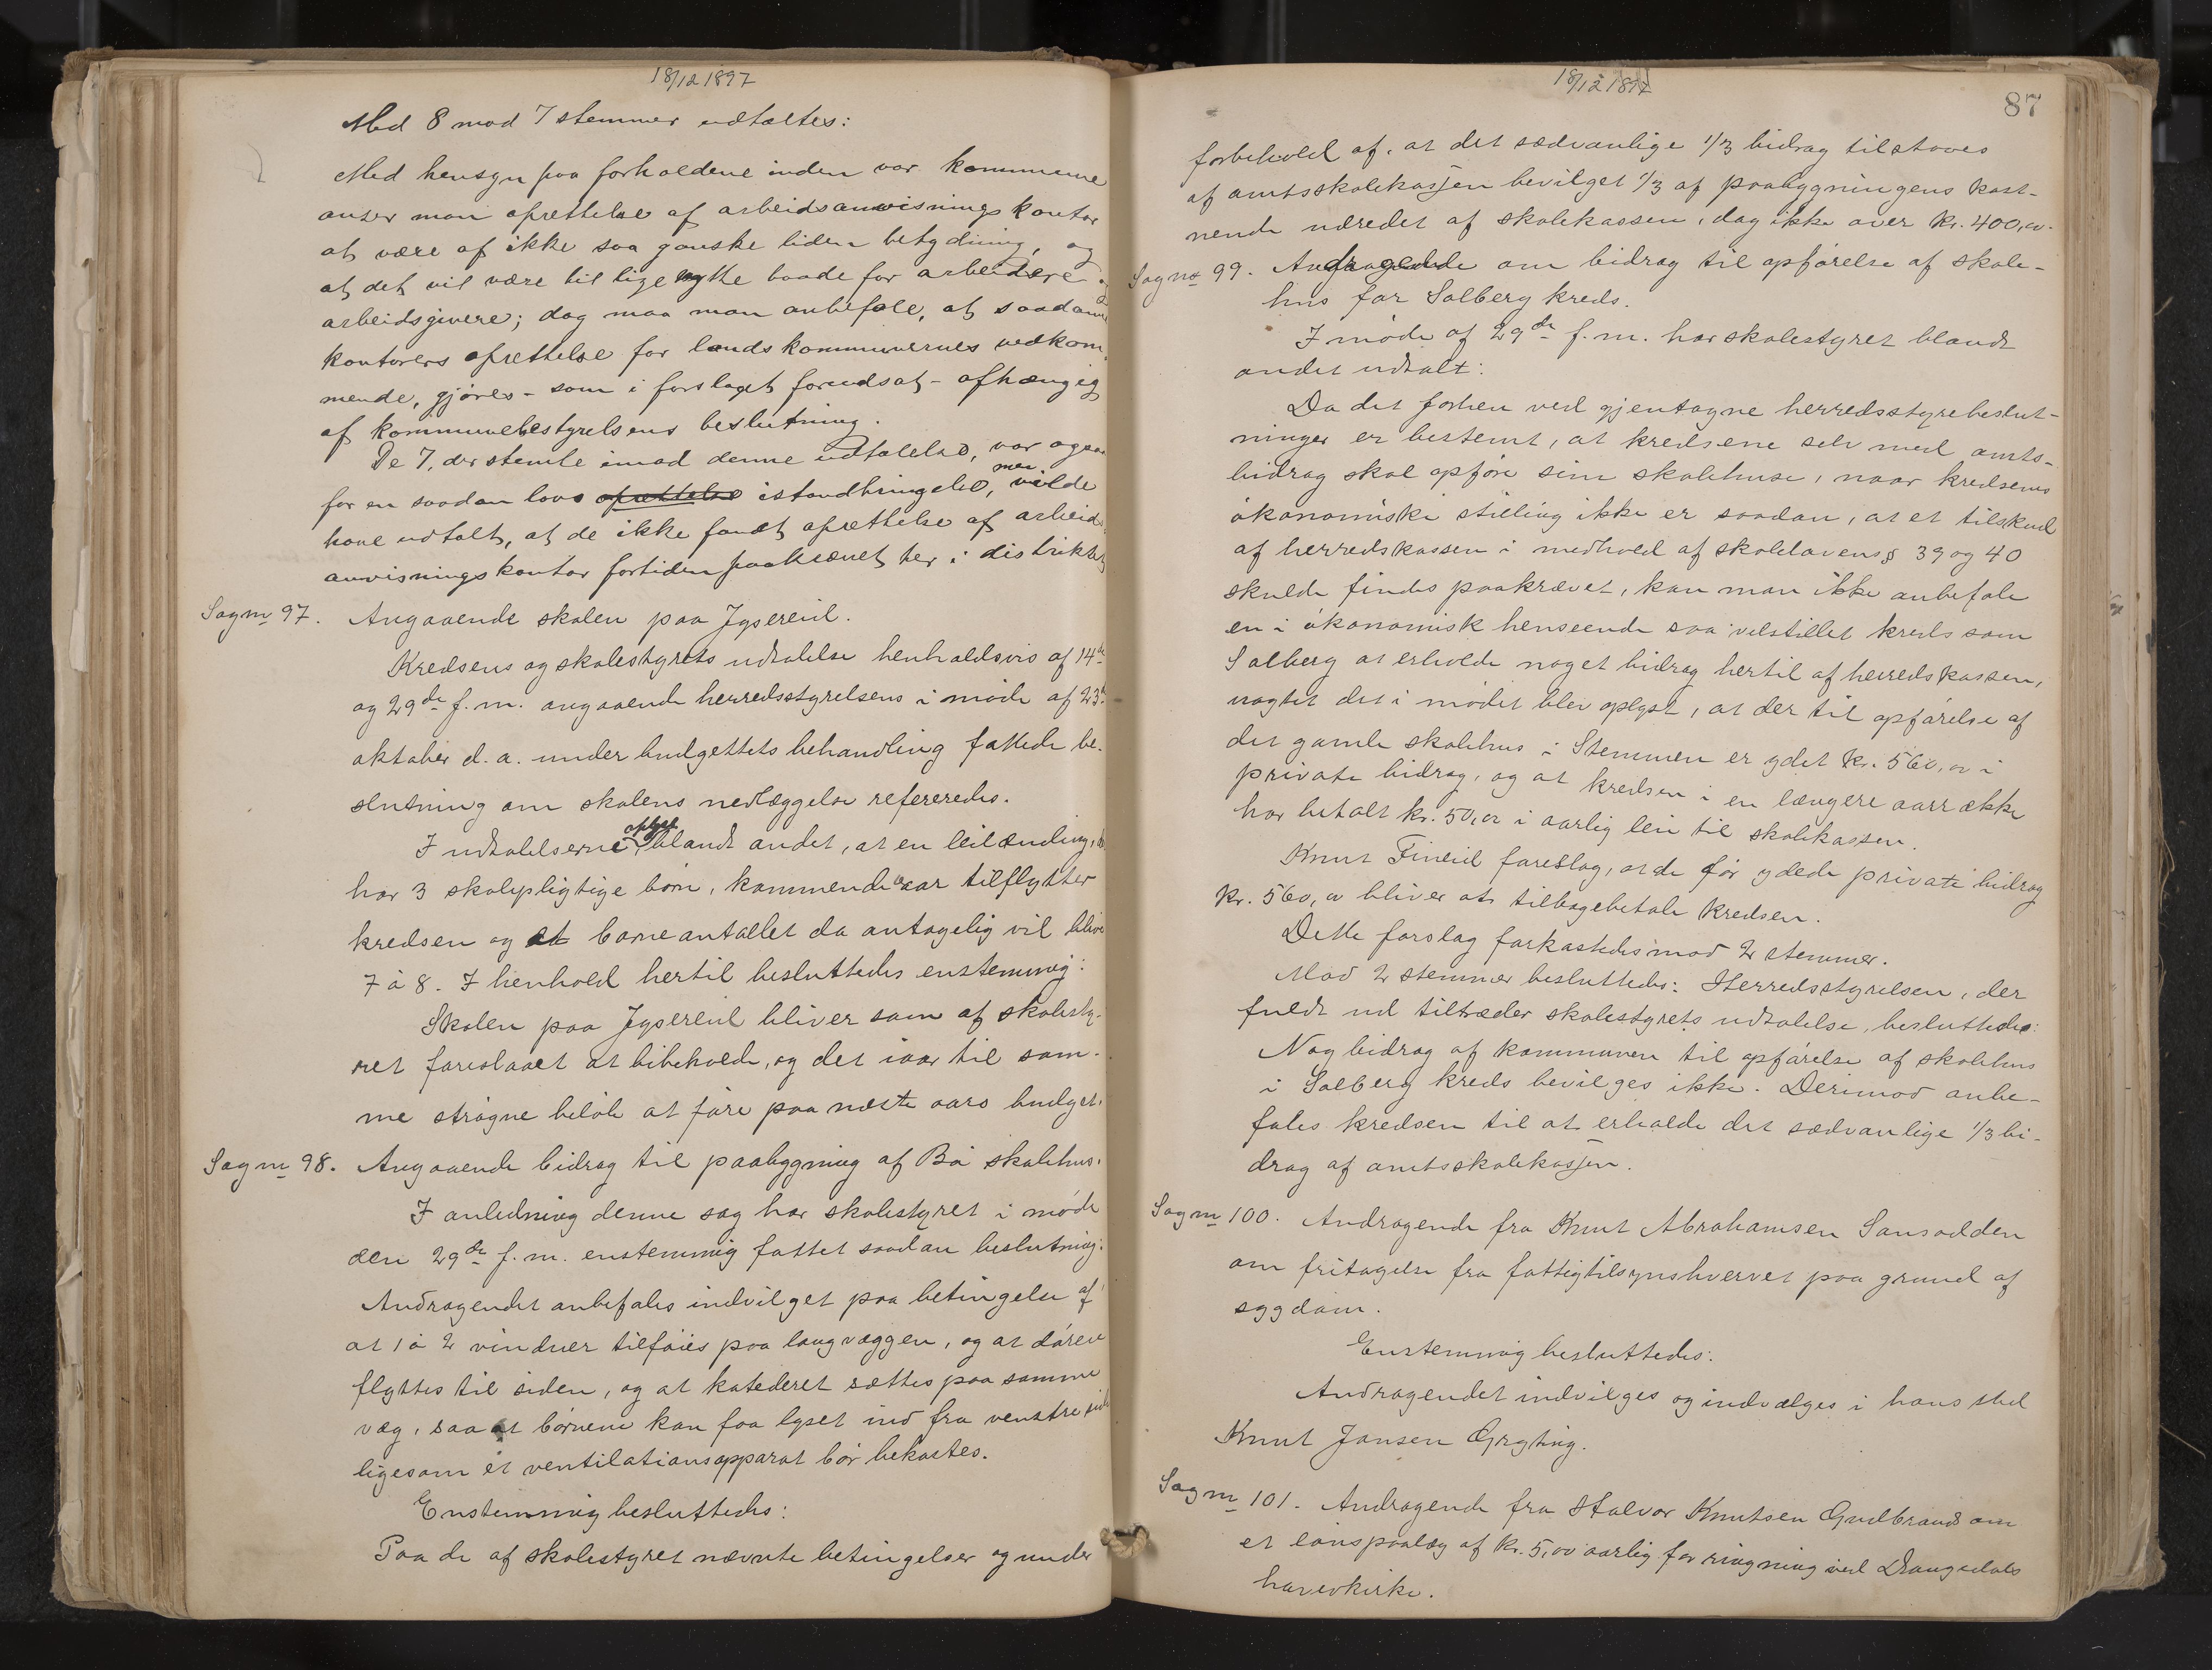 18/12 1897
Med 8 mod 7 stemmer udtaltes:
Med hensyn paa forholdene inden vor kommune
anser man oprettelse af arbeidsanvisningskontor
at være af ikke saa ganske liden betydning, og
at det vil være til lige nytte baade for arbeidere og
arbeidsgivere; dog maa man anbefale, at saadanne
kontorers oprettelse for landskommunernes vedkom-
mende, gjøres - som i forslaget forudsat - afhængig
af kommunebestyrelsens beslutning.
De 7, der stemte imod denne udtalelse, var ogsaa
for en saadan lovs oprettelse istandbringelse, men vilde
have udtalt, at de ikke fandt oprettelse af arbeids
anvisningskontor fortiden paakrævet her i distriktet
Sag no 97. Angaaende skolen paa Jysereid.
Kredsens og skolestyrets udtalelse henholdsvis af 14de
og 29de f.m. angaaende herredsstyrelsens i møde af 23de
oktober d.a. under budgettets behandling fattede be-
slutning om skolens nedlæggelse refereredes.
I udtalelserne oplyst blandt andet, at en leilænding, der
har 3 skolepligtige børn, kommende aar tilflytter
kredsen og at børneantallet da antagelig vil blive
7 à 8. I henhold hertil besluttedes enstemmig:
Skolen paa Jysereid bliver som af skolesty-
ret foreslaaet at bibeholde, og det iaar til sam-
me strøgne beløb at føre paa næste aars budget.
Sag no 98. Angaaende bidrag til paabygning af Bø skolehus.
I anledning denne sag har skolestyret i møde
den 29de f.m. enstemmig fattet saadan beslutning:
Andragendet anbefales indvilget paa betingelse af
at 1 à 2 vinduer tilføies paa langvæggen, og at døren
flyttes til siden, og at katederet sættes paa samme
væg, saa at børnene kan faa lyset ind fra venstre side
ligesom et ventilationsapparat bør bekostes.
Enstemmig besluttedes:
Paa de af skolestyret nævnte betingelser og under
18/12 1897
87
forbehold af, at det sædvanlige 1/3 bidrag tilstaaes
af amtsskolekassen bevilget 1/3 af paabygningens kost-
nende udredet af skolekassen, dog ikke over kr. 400,00.
Sag no 99. Andragende om bidrag til opførelse af skole-
hus for Solberg kreds.
I møde af 29de f.m. har skolestyret blandt
andet udtalt:
Da det forhen ved gjentagne herredsstyrebeslut-
ninger er bestemt, at kredsene selv med amts-
bidrag skal opføre sine skolehuse, naar kredsens
økonomiske stilling ikke er saadan, at et tilskud
af herredskassen i medhold af skolelovens § 39 og 40
skulde findes paakrævet, kan man ikke anbefale
en i økonomisk henseende saa velstillet kreds som
Solberg at erholde noget bidrag hertil af herredskassen,
uagtet det i mødet blev oplyst, at der til opførelse af
det gamle skolehus i Stemmen er ydet kr. 560,00 i
private bidrag, og at kredsen i en længere aarrække
har betalt kr. 50,00 i aarlig leie til skolekassen.
Knut Fineid foreslog, at de før ydede private bidrag
kr. 560,00 bliver at tilbagebetale kredsen.
Dette forslag forkastedes mod 2 stemmer.
Mod 2 stemmer besluttedes: Herredsstyrelsen, der
fuldt ud tiltræder skolestyrets udtalelse, besluttedes:
Nog bidrag af kommunen til opførelse af skolehus
i Solberg kreds bevilges ikke. Derimod anbe-
fales kredsen til at erholde det sædvanlige 1/3 bi-
drag af amtsskolekassen.
Sag no 100. Andragende fra Knut Abrahamsen Sansodden
om fritagelse fra fattigtilsynshvervet paa grund af
sygdom.
Enstemmig besluttedes:
Andragendet indvilges og indvælges i hans sted
Knut Jansen Gryting.
Sag no 101. Andragende fra Halvor Knutsen Gudbrands om
et lønspaalæg af kr. 5,00 aarlig for ringning ved Drangedals
hovedkirke.